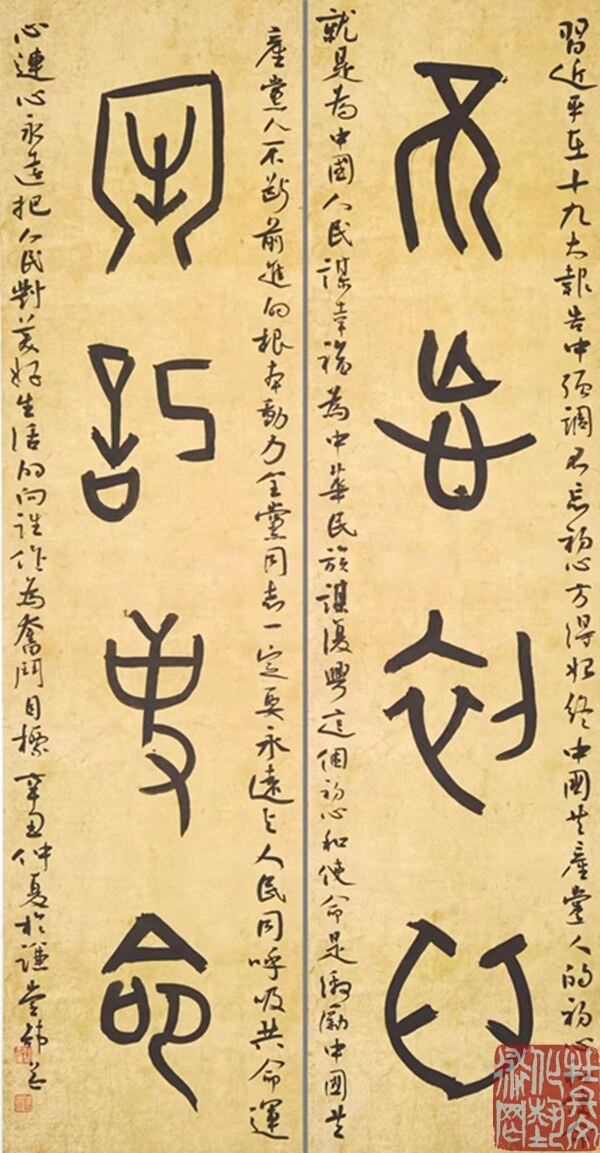 習近平在十九大報告中強調不忘初心方得始終中國共產黨人的初心
不忘初心
就是為中國人民謀幸福為中華民族謀復興這個初心和使命是激勵中國共
產黨人不斷前進的根本動力全黨同志一定要永遠与人民同呼吸共命運
牢記使命
心連心永遠把人民對美好生活的向往作為奮鬥目標 辛丑仲夏於謙堂